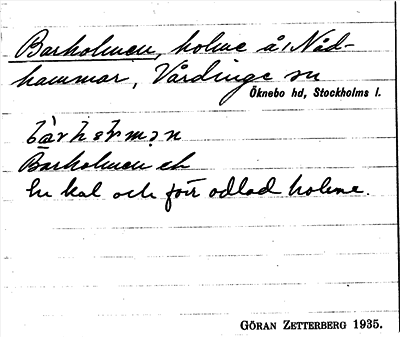 Barholmen, holme å/Nåd-
hammar, Vårdinge sn
Öknebo hd, Stockholms l.
Barholmen ek
En kal och förr odlad holme.
GÖRAN ZETTERBERG 1935.